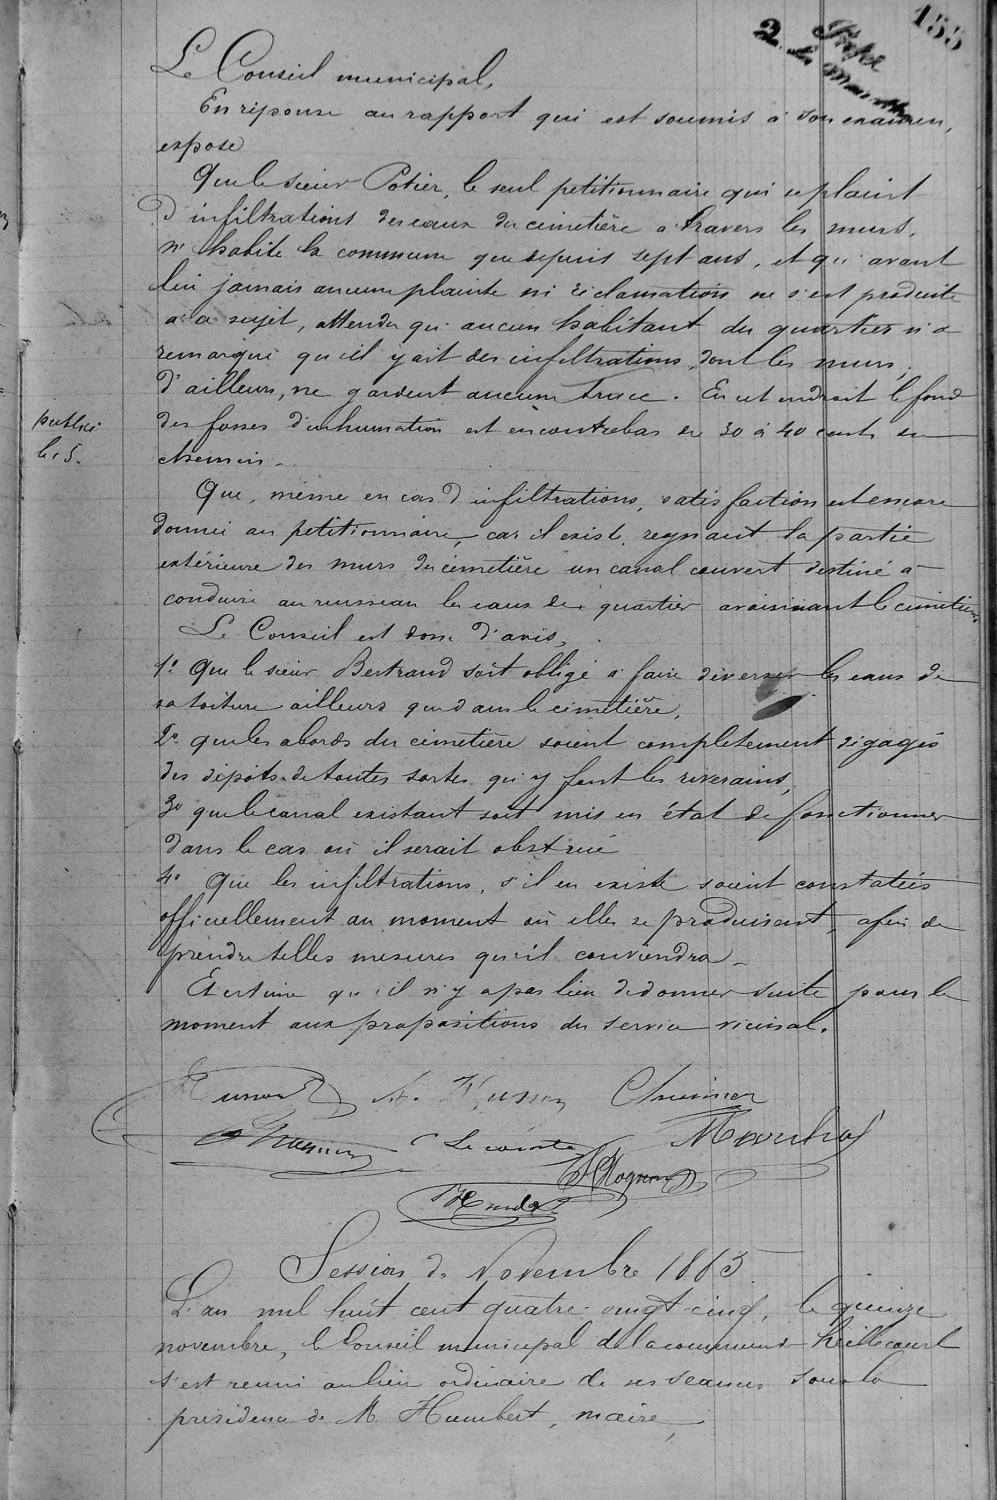 155
2
Le Conseil municipal,
En réponse au rapport qui est soumis à son examen,
expose
Que le sieur Potier, le seul petitionnaire qui se plaint
d'infiltrations des eaux du cimetière à travers les murs,
n'habite la commune que depuis sept ans, et qu'avant
lui jamais aucune plainte ni réclamation ne s'est produite
à ce sujet, attendu qu'aucun habitant du quartier n'a
remarqué qu'il y ait des infiltrations, dont les murs,
d'ailleurs, ne gardent aucune trace. En cet endroit le fond
des fosses d'inhumation est en contrebas de 30 à 40 cent. du
chemin.
Que, même en cas d'infiltrations, satisfaction est encore
donnée au petitionnaire, car il existe, regnant la partie
extérieure des murs du cimetière un canal couvert destiné à
conduire au ruisseau les eaux du quartier avoisinant le cimetière
Le Conseil est donc d'avis,
1º Que le sieur Bertrand soit obligé à faire déverser les eaux de
sa toiture ailleurs que dans le cimetière,
2º que les abords du cimetière soient complètement dégagés
des dépôts de toutes sortes qu'y font les riverains,
3º que le canal existant soit mis en état de fonctionner
dans le cas où il serait obstrué
4º Que les infiltrations, s'il en existe soient constatées
officiellement au moment où elles se produisent, afin de
prendre telles mesures qu'il conviendra.
Et estime qu'il n'y a pas lieu de donner suite pour le
moment aux propositions du service vicinal.
A. Husson
Lecomte
Session de Novembre 1885
L'an mil huit cent quatre-vingt-cinq, le quinze
novembre, le Conseil municipal de la commune de Heillecourt
s'est reuni au lieu ordinaire de ses séances sous la
présidence de M. Humbert, maire,